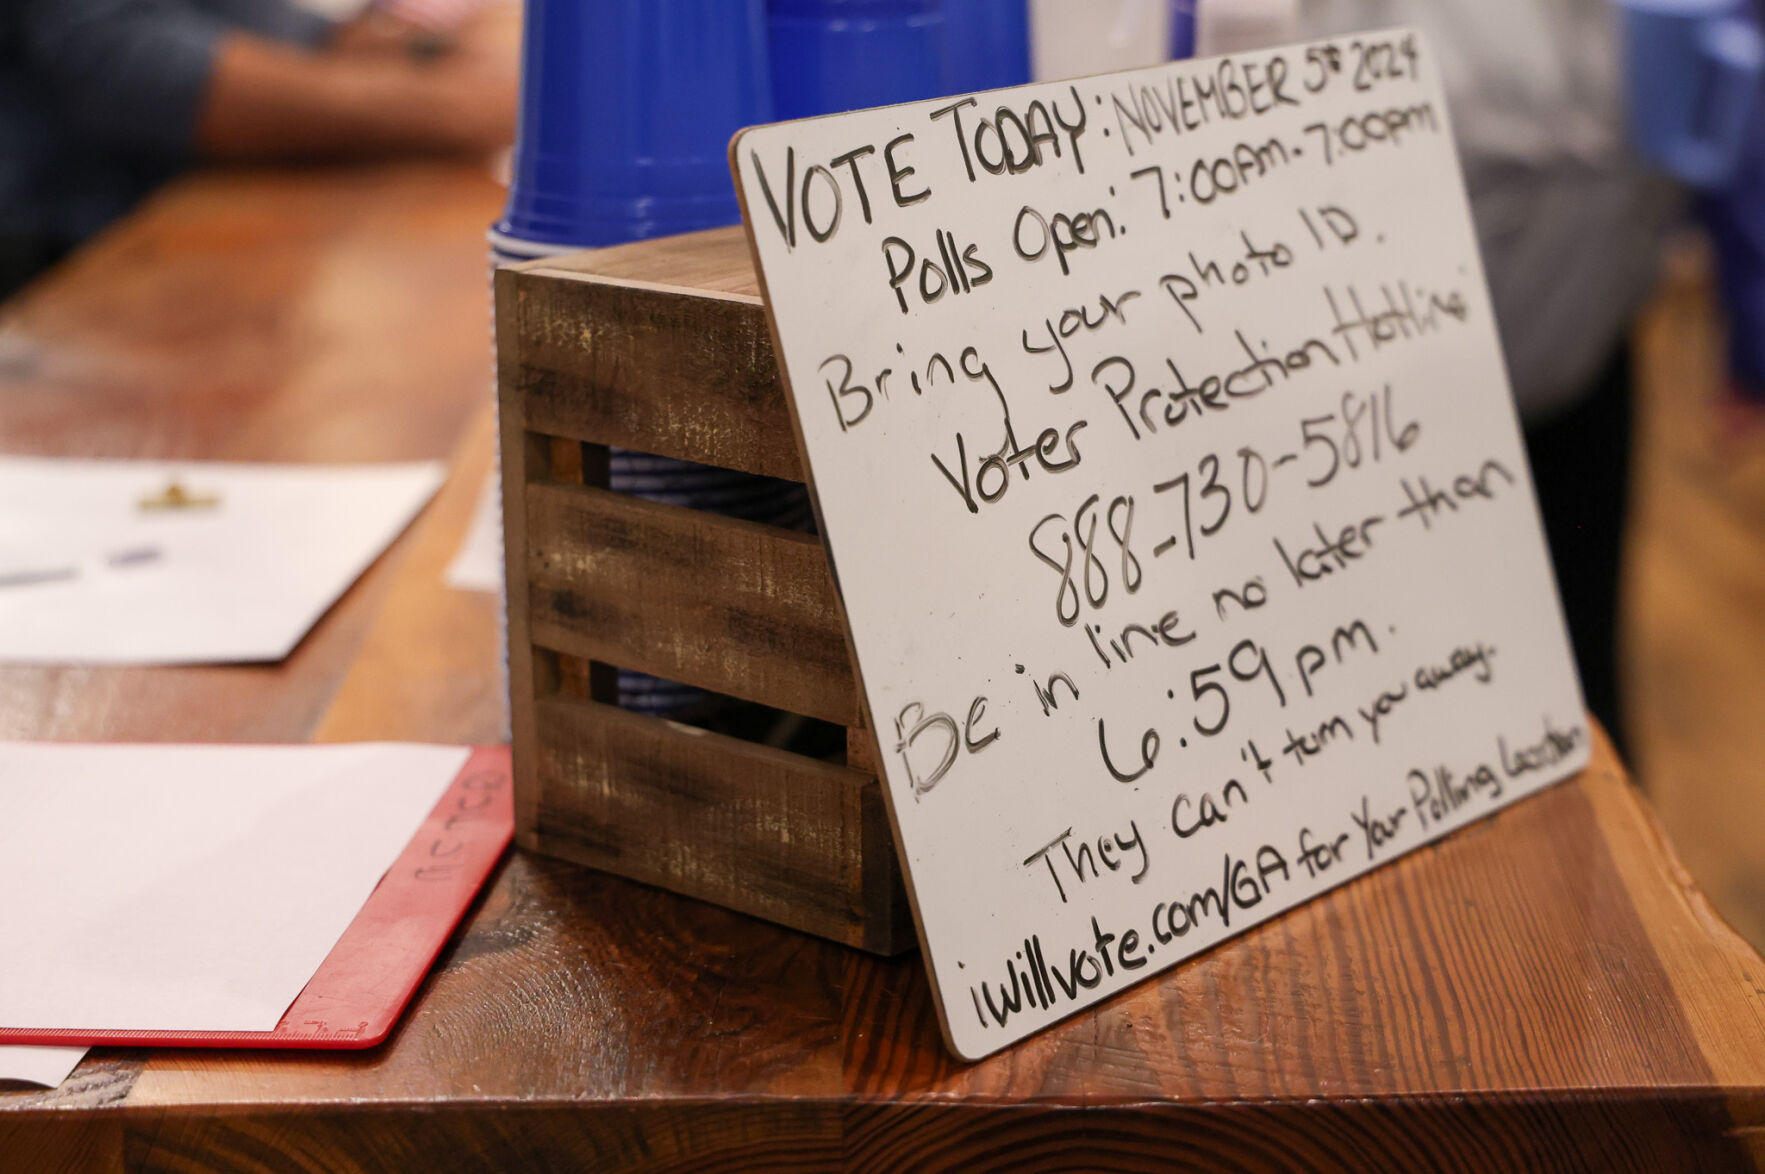 VOTE TODAY: NOVEMBER 5th 2024
Polls Open: 7:00Am-7:00pm
Bring your photo ID.
Voter Protection Hotline
888-730-5816
Be in line no later than
6:59pm.
They can't turn you away.
iwillvote.com/GA for Your Polling Location